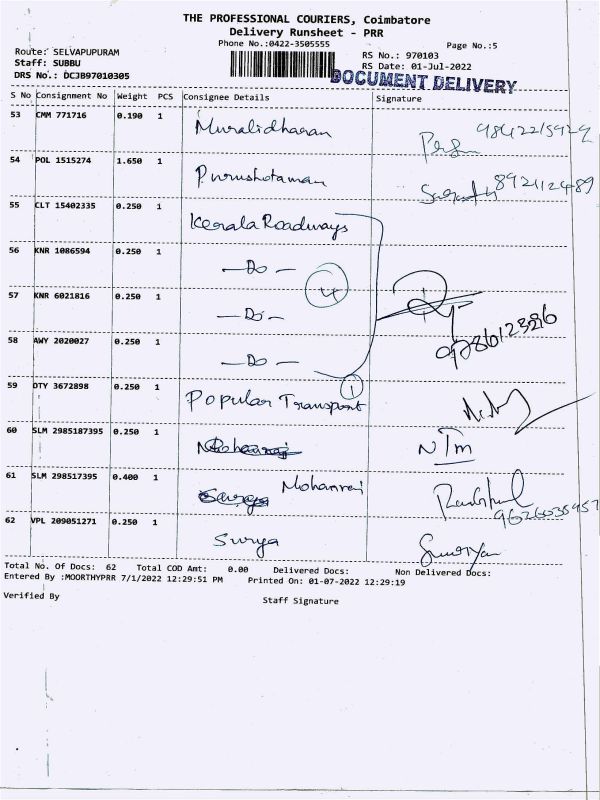 THE PROFESSIONAL COURIERS, Coimbatore
Delivery Runsheet - PRR
Phone No.:0422-3505555
Page No.:5
Route: SELVAPUPURAM
RS No.: 970103
Staff: SUBBU
RS Date: 01-Jul-2022
DRS No.: DCJB97010305
DOCUMENT DELIVERY
S No Consignment No Weight PCS Consignee Details Signature
53 CMM 771716 0.190 1 Muralidharan
54 POL 1515274 1.650 1 Purushotaman 8921112489
55 CLT 15402335 0.250 1 Kerala Roadways
56 KNR 1086594 0.250 1 — Do —
4
57 KNR 6021816 0.250 1 — Do —
58 AWY 2020027 0.250 1 — Do —
1
59 DTY 3672898 0.250 1 Popular Transport
60 SLM 2985187395 0.250 1 NTM
61 SLM 298517395 0.400 1 Mohanraj
62 VPL 209051271 0.250 1 Surya
Total No. Of Docs: 62 Total COD Amt: 0.00 Delivered Docs: Non Delivered Docs:
Entered By :MOORTHYPRR 7/1/2022 12:29:51 PM Printed On: 01-07-2022 12:29:19
Verified By
Staff Signature